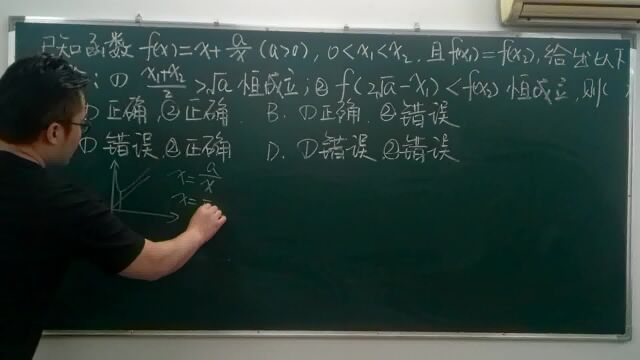 已知函数 f(x)=x+a/x (a>0), 0<x₁<x₂, 且f(x₁)=f(x₂), 给出以下
: ① (x₁+x₂)/2 >√a 恒成立; ② f(2√a-x₁)<f(x₂) 恒成立, 则(
①正确,②正确. B. ①正确, ②错误
①错误,②正确 D. ①错误 ②错误
x=a/x
x=